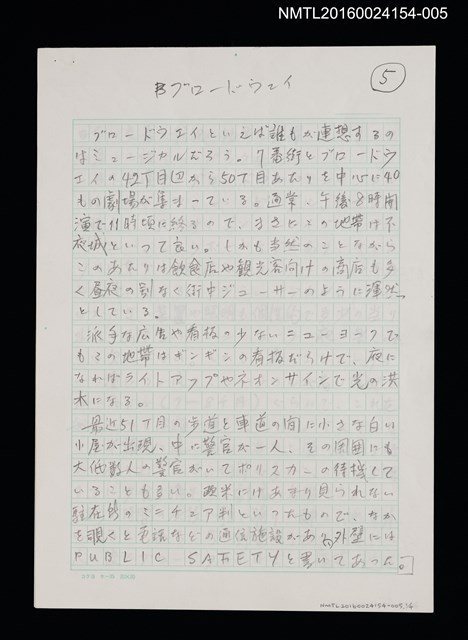 NMTL20160024154-005
5
ブロードウェイ
ブロードウェイといえば誰もが連想するの
はミュージカルだろう。7番街とブロードウ
ェイの42丁目辺から50丁目あたりを中心に40
もの劇場が集まっている。通常、午後8時開
演で11時頃に終るので、まさにこの地帯は不
夜城といって良い。しかも当然のことながら
このあたりは飲食店や観光客向けの商店も多
く昼夜の別なく街中ジューサーのように渾然
としている。
派手な広告や看板の少ないニューヨークで
もこの地帯はギンギンの看板だらけで、夜に
なればライトアップやネオンサインで光の洪
水になる。
最近51丁目の歩道と車道の間に小さな白い
小屋が出現、中に警官が一人、その周囲にも
大低数人の警官がいてポリスカーの待機して
いることも多い。欧米にはあまり見られない
駐在所のミニチュア判といったもので、なか
を覗くと電話などの通信施設があり、外壁には
PUBLIC SAFETYと書いてあった。
NMTL20160024154-005